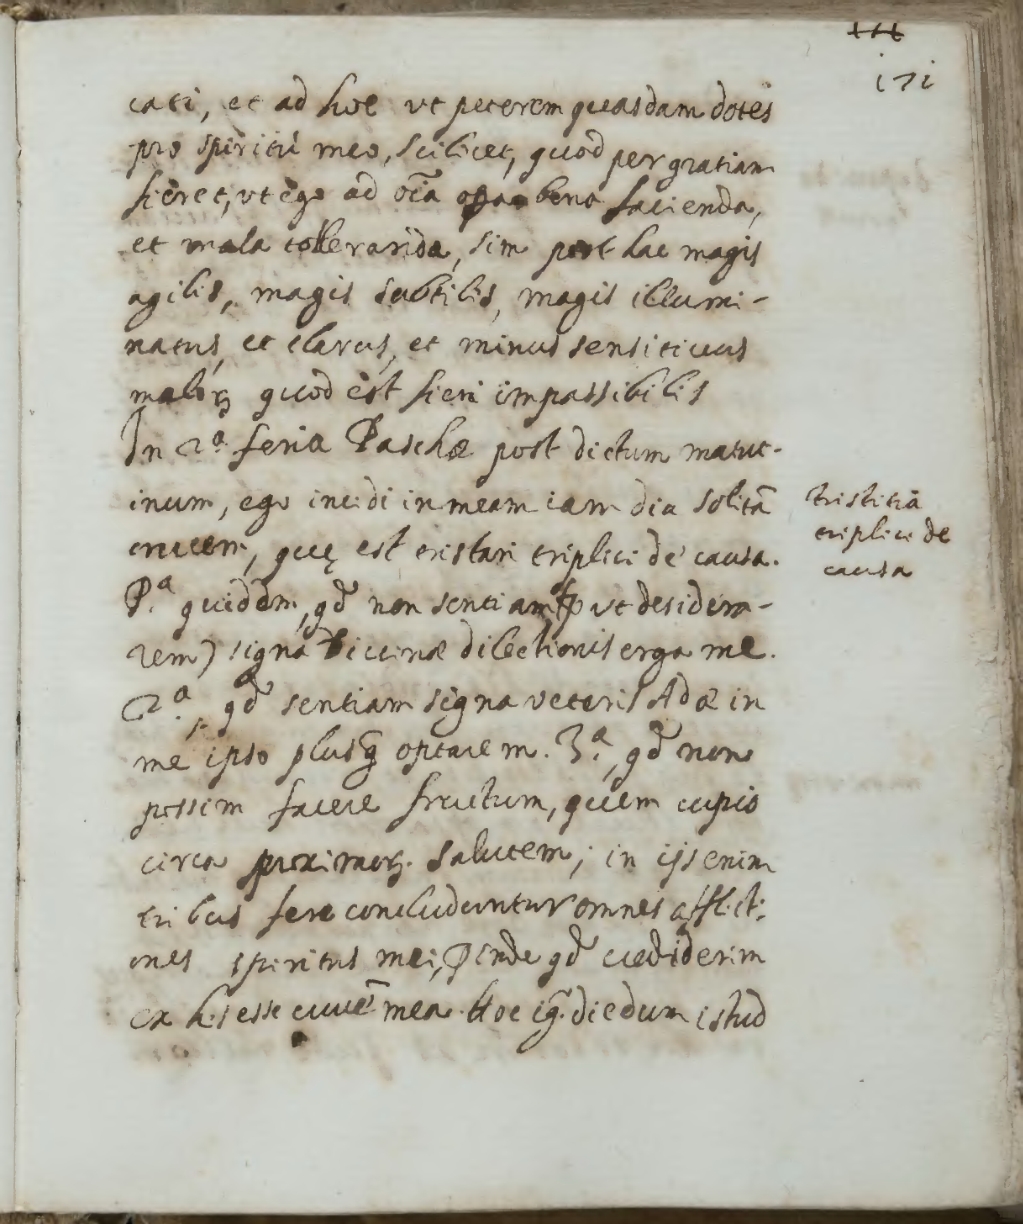 171
cati, et ad hoc vt peterem quasdam dotes
pro spiritu meo, scilicet, quod per gratiam
fieret, vt ego ad oĩa opa bona facienda,
et mala tolleranda, sim post hac magis
agilis, magis subtilis, magis illumi-
natus, et clarus, et minus sensitiuus
maloꝝ quod est fieri impassibilis
In 2ª feria Paschæ post dictum matut-
inum, ego incidi in meam iam diu solitã
crucem, quę est tristari triplici de causa.
tristitia
triplici de
causa
P.ª quiddm, qđ non sentiam (vt desidera-
rem) signa Diuinæ dilectionis erga me.
2.ª, qđ sentiam signa veteris Adæ in
me ipso plusq̃ optarem. 3.ª, qđ non
possem facere fructum, quem cupio
circa proximoꝝ salutem; in ijs enim
tribus fere concluduntur omnes afflicti-
ones spiritus mei, Deinde qđ crediderim
ex his esse crucẽ mea. Hoc ig̃. die dum istud